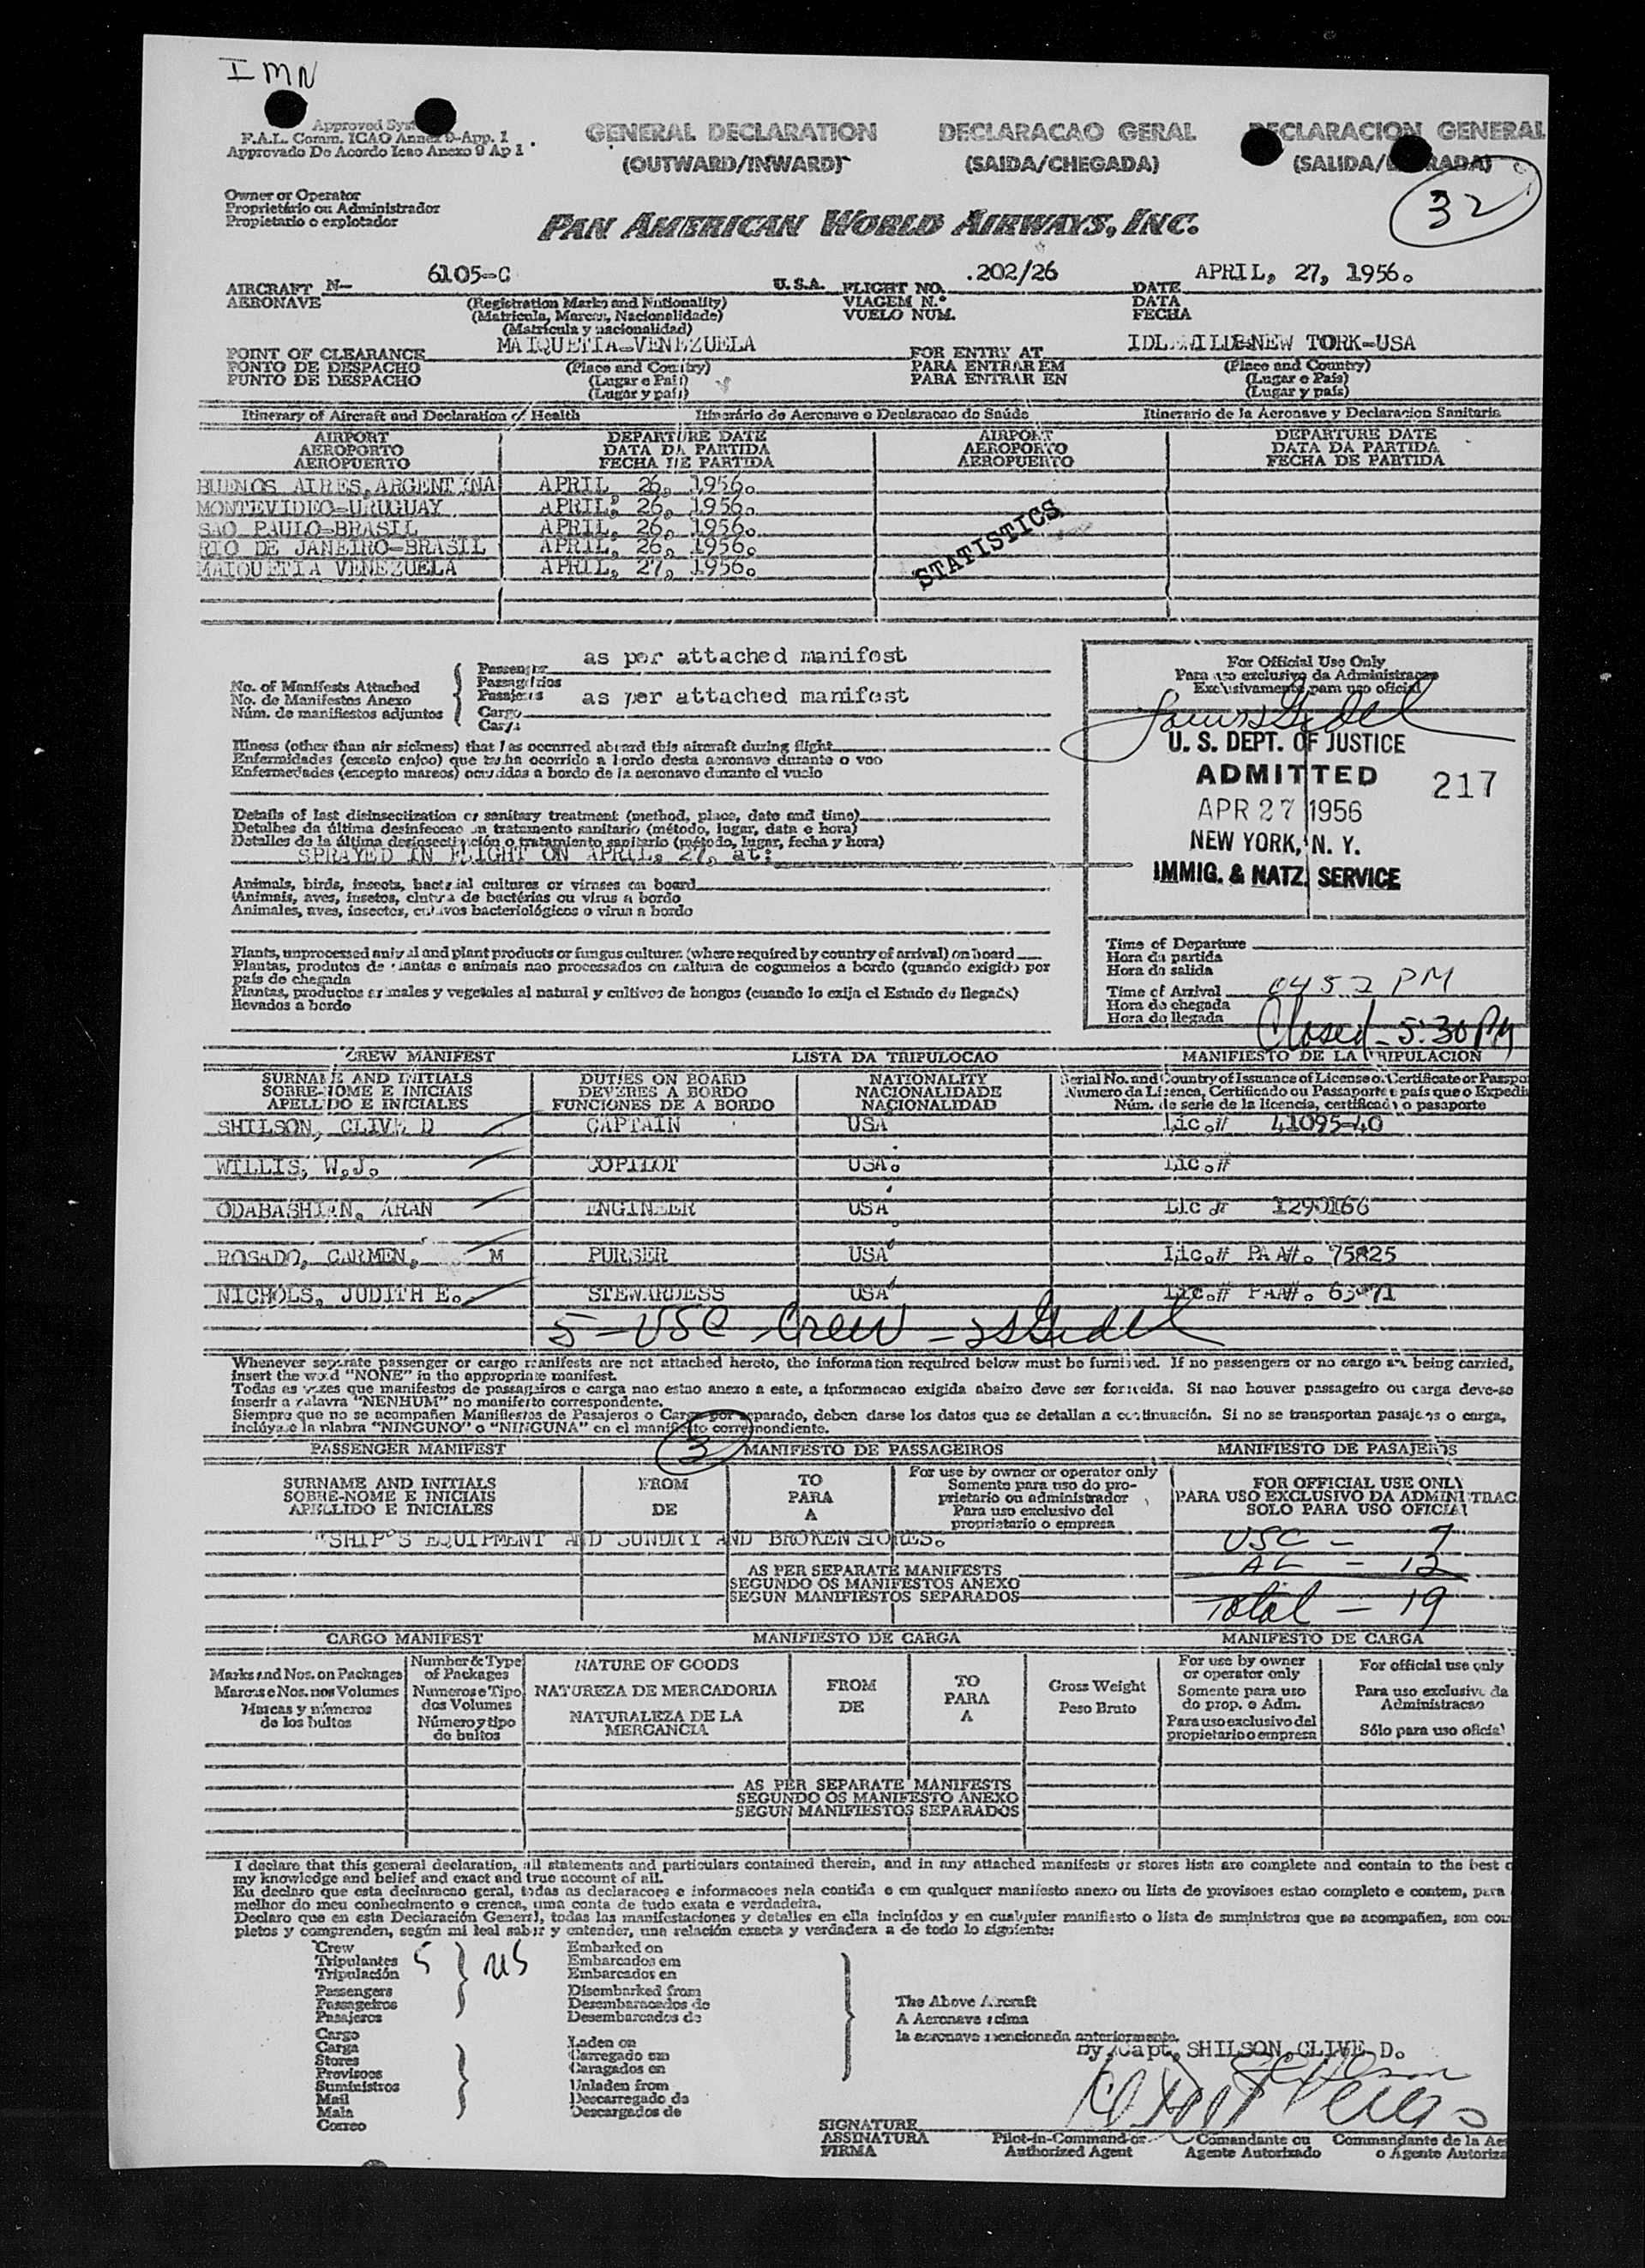 I MN
Approved
F.A.L. Comm. ICAO Annex 9-App. 1
Approvado De Acordo Icao Anexo 9 Ap 1
GENERAL DECLARATION
(OUTWARD/INWARD)
DECLARACAO GERAL
(SAIDA/CHEGADA)
DECLARACION GENERAL
(SALIDA/
32
Owner or Operator
Proprietário ou Administrador
Propietario o explotador
PAN AMERICAN WORLD AIRWAYS, INC.
AIRCRAFT N- 6105-C U.S.A. FLIGHT NO. 202/26 DATE APRIL, 27, 1956.
AERONAVE (Registration Marks and Nationality) VIAGEM N.º DATA
(Matricula, Marcas, Nacionalidade) VUELO NUM. FECHA
(Matricula y nacionalidad)
POINT OF CLEARANCE MAIQUETIA-VENEZUELA FOR ENTRY AT NEW TORK-USA
PONTO DE DESPACHO (Place and Country) PARA ENTRAR EM (Place and Country)
PUNTO DE DESPACHO (Lugar e Pais) PARA ENTRAR EN (Lugar e País)
(Lugar y pais) (Lugar y país)
Itinerary of Aircraft and Declaration of Health Itinerário do Aeronave e Declaracao do Saúde Itinerario de la Aeronave y Declaracion Sanitaria
AIRPORT DEPARTURE DATE AIRPORT DEPARTURE DATE
AEROPORTO DATA DA PARTIDA AEROPORTO DATA DA PARTIDA
AEROPUERTO FECHA DE PARTIDA AEROPUERTO FECHA DE PARTIDA
BUENOS AIRES, ARGENTINA APRIL, 26, 1956.
MONTEVIDEO-URUGUAY APRIL, 26, 1956.
SAO PAULO-BRASIL APRIL, 26, 1956.
RIO DE JANEIRO-BRASIL APRIL, 26, 1956.
MAIQUETIA VENEZUELA APRIL, 27, 1956.
STATISTICS
No. of Manifests Attached
No. de Manifestos Anexo
Núm. de manifiestos adjuntos
Passenger as per attached manifest
Passageiros
Pasajeros as per attached manifest
Cargo
Carga
Illness (other than air sickness) that has occurred aboard this aircraft during flight
Enfermidades (exceto enjoo) que tenha ocorrido a bordo desta aeronave durante o voo
Enfermedades (excepto mareos) ocurridas a bordo de la aeronave durante el vuelo
Details of last disinsectization or sanitary treatment (method, place, date and time)
Detalhes da última desinfeccao ou tratamento sanitario (método, lugar, data e hora)
Detalles de la última desinsectización o tratamiento sanitario (método, lugar, fecha y hora)
SPRAYED IN FLIGHT ON APRIL, 27, at:
Animals, birds, insects, bacterial cultures or viruses on board
Animais, aves, insetos, cultura de bactérias ou virus a bordo
Animales, aves, insectos, cultivos bacteriológicos o virus a bordo
Plants, unprocessed animal and plant products or fungus cultures (where required by country of arrival) on board
Plantas, produtos de plantas e animais nao processados ou cultura de cogumelos a bordo (quando exigido por
pais de chegada
Plantas, productos animales y vegetales al natural y cultivos de hongos (cuando lo exija el Estado de llegada)
llevados a bordo
For Official Use Only
Para uso exclusivo da Administracao
Exclusivamente para uso oficial
U. S. DEPT. OF JUSTICE
ADMITTED 217
APR 27 1956
NEW YORK, N. Y.
IMMIG. & NATZ. SERVICE
Time of Departure
Hora da partida
Hora do salida
Time of Arrival 0452 PM
Hora do chegada
Hora do llegada Closed - 5:30 PM
CREW MANIFEST LISTA DA TRIPULOCAO MANIFIESTO DE LA TRIPULACION
SURNAME AND INITIALS DUTIES ON BOARD NATIONALITY Serial No. and Country of Issuance of License or Certificate or Passpo
SOBRE-NOME E INICIAIS DEVERES A BORDO NACIONALIDADE Numero da Licenca, Certificado ou Passaporte e país que o Expedi
APELLIDO E INICIALES FUNCIONES DE A BORDO NACIONALIDAD Núm. de serie de la licencia, certificado o pasaporte
SHILSON, CLIVE D CAPTAIN USA Lic.# 41095-40
WILLIS, W.J. COPILOT USA. Lic.#
ODABASHIAN, ARAN ENGINEER USA Lic # 1290166
ROSADO, CARMEN, M PURSER USA Lic.# PAA#. 75825
NICHOLS, JUDITH E. STEWARDESS USA Lic.# PAA#.
5 - USC Crew
Whenever separate passenger or cargo manifests are not attached hereto, the information required below must be furnished. If no passengers or no cargo are being carried,
insert the word "NONE" in the appropriate manifest.
Todas as vezes que manifestos de passageiros e carga nao estao anexo a este, a informacao exigida abaixo deve ser fornecida. Si nao houver passageiro ou carga deve-se
inserir a palavra "NENHUM" no manifesto correspondente.
Siempre que no se acompañen Manifiestos de Pasajeros o Carga por separado, deben darse los datos que se detallan a continuación. Si no se transportan pasajeros o carga,
inclúyase la plabra "NINGUNO" o "NINGUNA" en el manifiesto correspondiente.
3
PASSENGER MANIFEST MANIFESTO DE PASSAGEIROS MANIFIESTO DE PASAJEROS
SURNAME AND INITIALS FROM TO For use by owner or operator only FOR OFFICIAL USE ONLY
SOBRE-NOME E INICIAIS PARA Somente para uso do pro- PARA USO EXCLUSIVO DA ADMINISTRAC
APELLIDO E INICIALES DE A prietario ou administrador SOLO PARA USO OFICIAL
Para uso exclusivo del
proprietario o empresa
"SHIP'S EQUIPMENT AND SUNDRY AND BROKEN STORES. USC - 7
AS PER SEPARATE MANIFESTS AL - 12
SEGUNDO OS MANIFESTOS ANEXO
SEGUN MANIFIESTOS SEPARADOS Total - 19
CARGO MANIFEST MANIFIESTO DE CARGA MANIFESTO DE CARGA
Marks and Nos. on Packages
Marcas e Nos. nos Volumes
Marcas y números
de los bultos
Number & Type
of Packages
Numeros e Tipo
dos Volumes
Número y tipo
de bultos
NATURE OF GOODS
NATUREZA DE MERCADORIA
NATURALEZA DE LA
MERCANCIA
FROM
DE
TO
PARA
A
Gross Weight
Peso Bruto
For use by owner
or operator only
Somente para uso
do prop. o Adm.
Para uso exclusivo del
propietario o empresa
For official use only
Para uso exclusivo da
Administracao
Sólo para uso oficial
AS PER SEPARATE MANIFESTS
SEGUNDO OS MANIFESTO ANEXO
SEGUN MANIFIESTOS SEPARADOS
I declare that this general declaration, all statements and particulars contained therein, and in any attached manifests or stores lists are complete and contain to the best o
my knowledge and belief and exact and true account of all.
Eu declaro que esta declaracao geral, todas as declaracoes e informacoes nela contida e em qualquer manifesto anexo ou lista de provisoes estao completo e contem, para
melhor do meu conhecimento e crenca, uma conta de tudo exata e verdadeira.
Declaro que en esta Declaración General, todas las manifestaciones y detalles en ella incluídos y en cualquier manifiesto o lista de suministros que se acompañen, son com
pletos y comprenden, según mi leal saber y entender, una relación exacta y verdadera a de todo lo siguiente:
Crew
Tripulantes 5 US
Tripulación
Passengers
Passageiros
Pasajeros
Cargo
Carga
Stores
Provisoes
Suministros
Mail
Mala
Correo
Embarked on
Embarcados em
Embarcados en
Disembarked from
Desembaracados de
Desembarcados de
Laden on
Carregado em
Caragados en
Unladen from
Descarregado da
Descargados de
The Above Aircraft
A Aeronave acima
la aeronave mencionada anteriormente.
By /Capt, SHILSON, CLIVE D.
SIGNATURE
ASSINATURA
FIRMA
Pilot-in-Command or
Authorized Agent
Comandante ou
Agente Autorizado
Commandante de la Ae
o Agente Autoriza